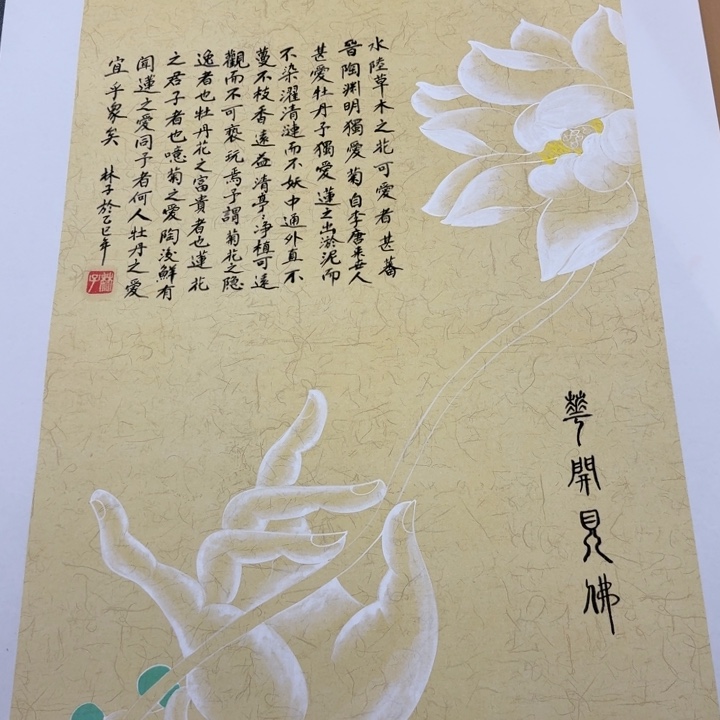 水陸草木之花可愛者甚蕃
晉陶渊明獨愛菊自李唐来世人
甚愛牡丹予獨愛蓮之出淤泥而
不染濯清漣而不妖中通外直不
蔓不枝香遠益清亭:净植可遠
觀而不可亵玩焉予謂菊花之隐
逸者也牡丹花之富貴者也蓮花
之君子者也噫菊之愛陶後鮮有
聞蓮之愛同予者何人牡丹之愛
宜乎衆矣 林子於乙巳年
華開見佛